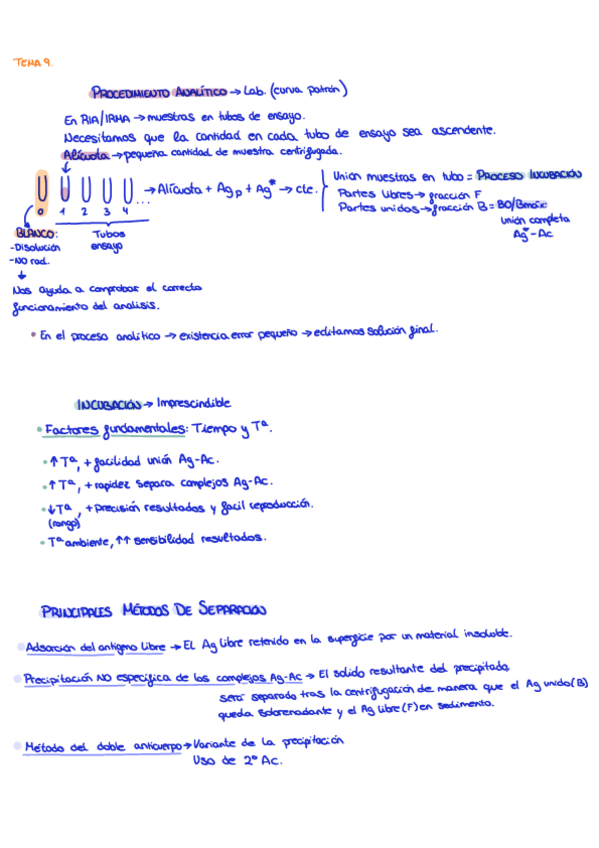 TEMA 9.
PROCEDIMIENTO ANALÍTICO → Lab. (curva patrón)
En RIA/IRMA → muestras en tubos de ensayo.
Necesitamos que la cantidad en cada tubo de ensayo sea ascendente.
Alícuota → pequeña cantidad de muestra centrifugada.
0 1 2 3 4 ...
→ Alícuota + Agp + Ag* → cte.
Unión muestras en tubo = PROCESO INCUBACIÓN
Partes libres → fracción F
Partes unidas → fracción B = B0/Bmáx
unión completa
Ag* - Ac
BLANCO:
-Disolución
-NO rad.
Tubos
ensayo
↓
Nos ayuda a comprobar el correcto
funcionamiento del analisis.
• En el proceso analítico → existencia error pequeño → editamos solución final.
INCUBACIÓN → Imprescindible
• Factores fundamentales: Tiempo y Tª.
• ↑Tª, + facilidad unión Ag-Ac.
• ↑Tª, + rapidez separa complejos Ag-Ac.
• ↓Tª, + precisión resultados y facil reproducción.
(rango)
• Tª ambiente, ↑↑ sensibilidad resultados.
PRINCIPALES MÉTODOS DE SEPARACIÓN
• Adsorción del antígeno libre → EL Ag libre retenido en la superficie por un material insoluble.
• Precipitación NO especifica de los complejos Ag-Ac → El solido resultante del precipitado
será separado tras la centrifugación de manera que el Ag unido (B)
queda sobrenadante y el Ag libre (F) en sedimento.
• Método del doble anticuerpo → Variante de la precipitación
Uso de 2º Ac.